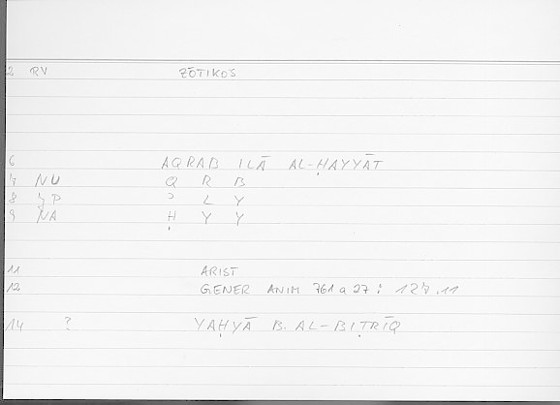 2 RV ZŌTIKOS
6 AQRAB ILĀ AL-ḤAYYĀT
7 NU Q R B
8 ʾ L Y
9 NA Ḥ Y Y
11 ARIST
12 GENER ANIM 761 a 27 : 127.11
14 ? YAḤYĀ B. AL-BIṬRĪQ